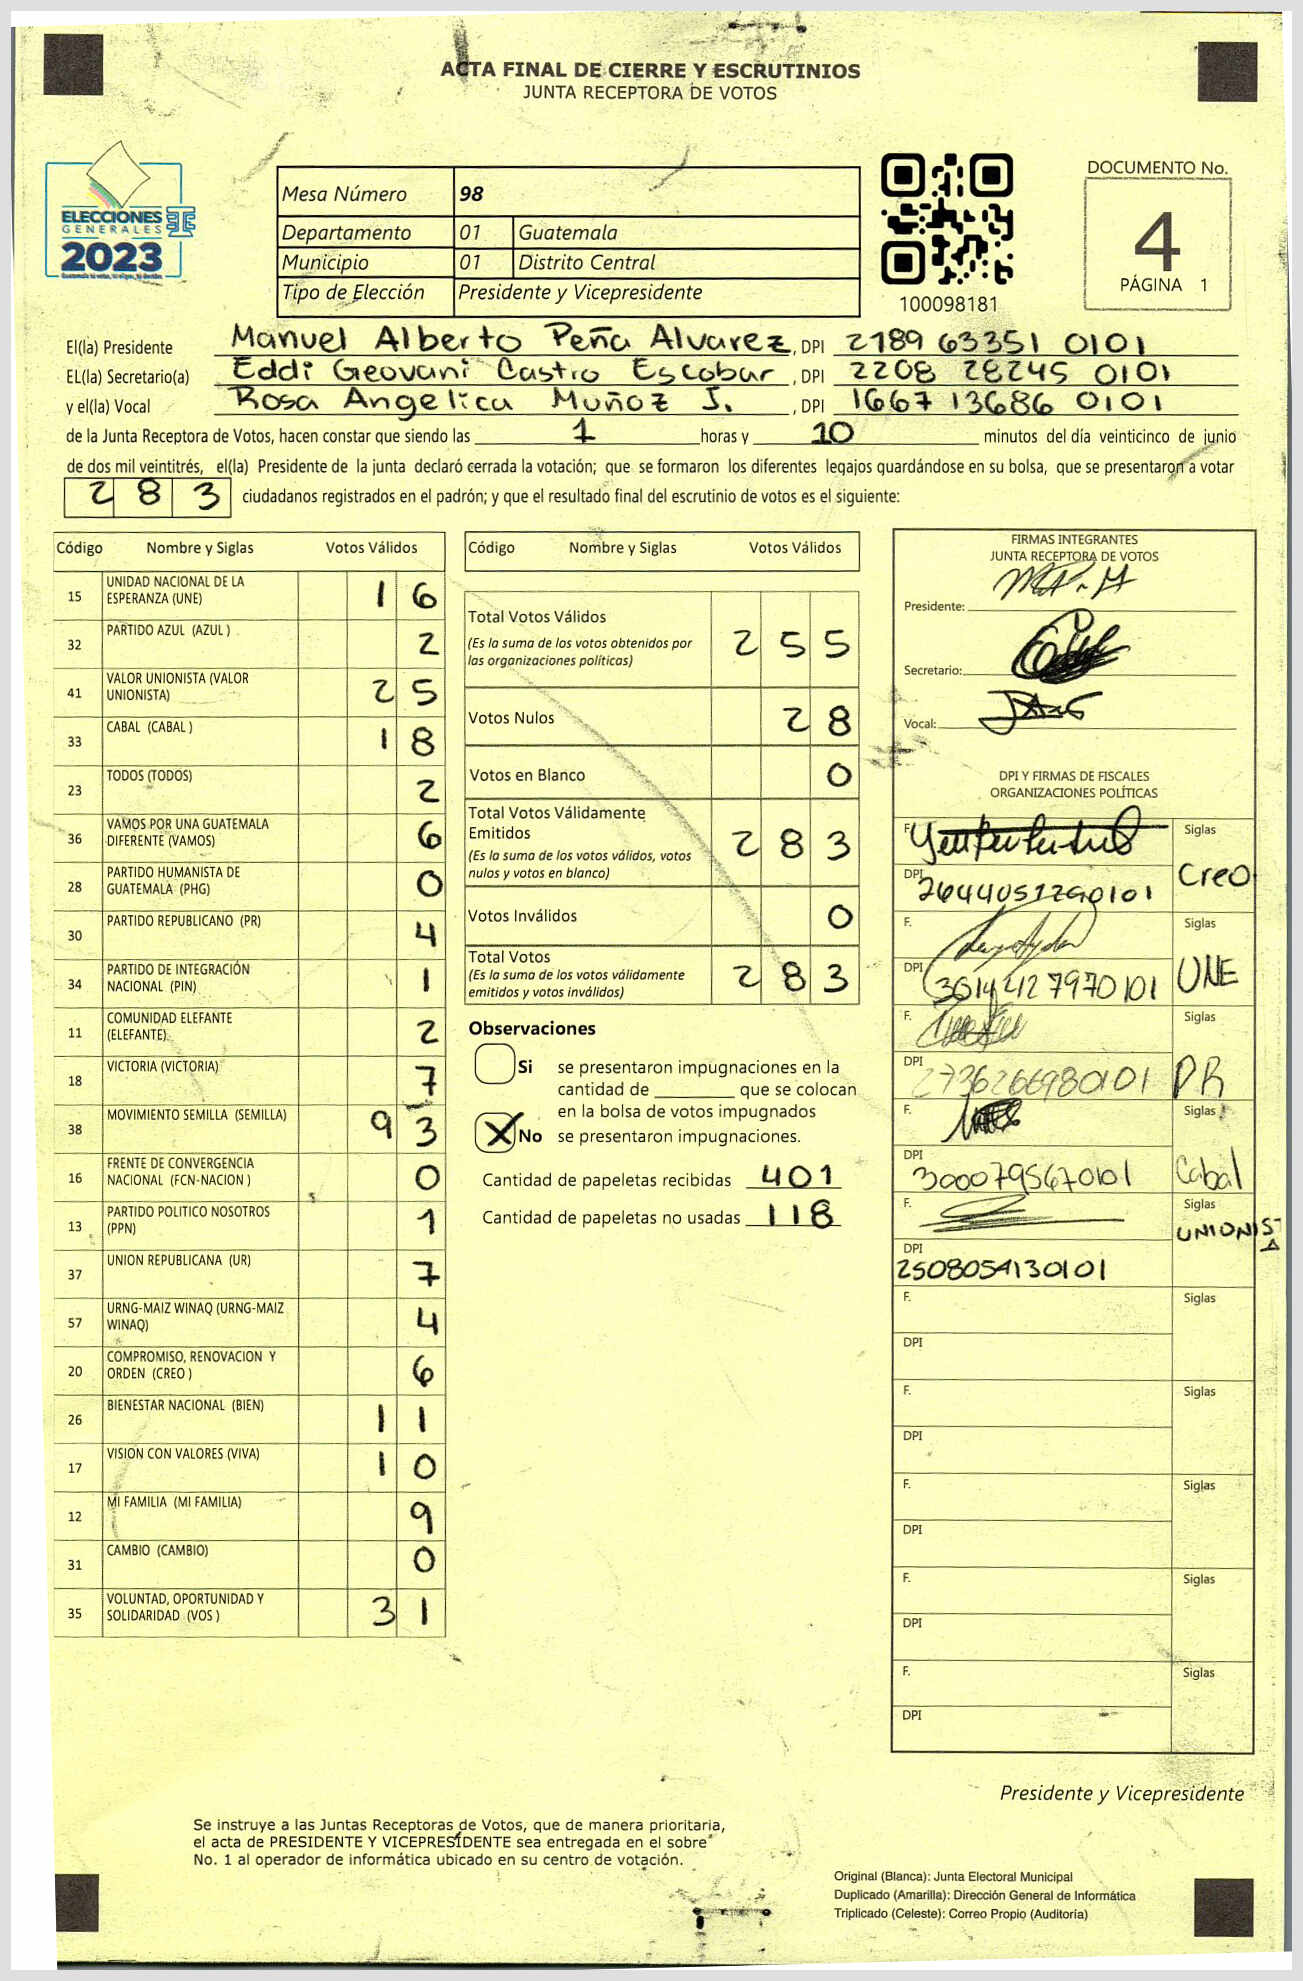 ACTA FINAL DE CIERRE Y ESCRUTINIOS
JUNTA RECEPTORA DE VOTOS
ELECCIONES
GENERALES
2023
Mesa Número 98
Departamento 01 Guatemala
Municipio 01 Distrito Central
Tipo de Elección Presidente y Vicepresidente
100098181
DOCUMENTO No.
4
PÁGINA 1
El(la) Presidente Manuel Alberto Peña Alvarez, DPI 2189 63351 0101
EL(la) Secretario(a) Eddi Geovani Castro Escobar, DPI 2208 28245 0101
y el(la) Vocal Rosa Angelica Muñoz J., DPI 1667 13686 0101
de la Junta Receptora de Votos, hacen constar que siendo las 1 horas y 10 minutos del día veinticinco de junio
de dos mil veintitrés, el(la) Presidente de la junta declaró cerrada la votación; que se formaron los diferentes legajos guardándose en su bolsa, que se presentaron a votar
283 ciudadanos registrados en el padrón; y que el resultado final del escrutinio de votos es el siguiente:
Código Nombre y Siglas Votos Válidos
15 UNIDAD NACIONAL DE LA ESPERANZA (UNE) 16
32 PARTIDO AZUL (AZUL ) 2
41 VALOR UNIONISTA (VALOR UNIONISTA) 25
33 CABAL (CABAL ) 18
23 TODOS (TODOS) 2
36 VAMOS POR UNA GUATEMALA DIFERENTE (VAMOS) 6
28 PARTIDO HUMANISTA DE GUATEMALA (PHG) 0
30 PARTIDO REPUBLICANO (PR) 4
34 PARTIDO DE INTEGRACIÓN NACIONAL (PIN) 1
11 COMUNIDAD ELEFANTE (ELEFANTE) 2
18 VICTORIA (VICTORIA) 7
38 MOVIMIENTO SEMILLA (SEMILLA) 93
16 FRENTE DE CONVERGENCIA NACIONAL (FCN-NACION ) 0
13 PARTIDO POLITICO NOSOTROS (PPN) 1
37 UNION REPUBLICANA (UR) 7
57 URNG-MAIZ WINAQ (URNG-MAIZ WINAQ) 4
20 COMPROMISO, RENOVACION Y ORDEN (CREO ) 6
26 BIENESTAR NACIONAL (BIEN) 11
17 VISION CON VALORES (VIVA) 10
12 MI FAMILIA (MI FAMILIA) 9
31 CAMBIO (CAMBIO) 0
35 VOLUNTAD, OPORTUNIDAD Y SOLIDARIDAD (VOS ) 31
Código Nombre y Siglas Votos Válidos
Total Votos Válidos 255
(Es la suma de los votos obtenidos por
las organizaciones políticas)
Votos Nulos 28
Votos en Blanco 0
Total Votos Válidamente
Emitidos 283
(Es la suma de los votos válidos, votos
nulos y votos en blanco)
Votos Inválidos 0
Total Votos 283
(Es la suma de los votos válidamente
emitidos y votos inválidos)
Observaciones
Si se presentaron impugnaciones en la
cantidad de ________ que se colocan
en la bolsa de votos impugnados
X No se presentaron impugnaciones.
Cantidad de papeletas recibidas 401
Cantidad de papeletas no usadas 118
FIRMAS INTEGRANTES
JUNTA RECEPTORA DE VOTOS
Presidente:
Secretario:
Vocal:
DPI Y FIRMAS DE FISCALES
ORGANIZACIONES POLÍTICAS
F. Siglas
DPI 2644051290101 Creo
F. Siglas
DPI UNE
F. Siglas
DPI 2736266980101 PR
F. Siglas
DPI 3000795670101 Cabal
F. Siglas
UNIONISTA
DPI 2508054130101
F. Siglas
DPI
F. Siglas
DPI
F. Siglas
DPI
F. Siglas
DPI
F. Siglas
DPI
Presidente y Vicepresidente
Se instruye a las Juntas Receptoras de Votos, que de manera prioritaria,
el acta de PRESIDENTE Y VICEPRESIDENTE sea entregada en el sobre
No. 1 al operador de informática ubicado en su centro de votación.
Original (Blanca): Junta Electoral Municipal
Duplicado (Amarilla): Dirección General de Informática
Triplicado (Celeste): Correo Propio (Auditoría)